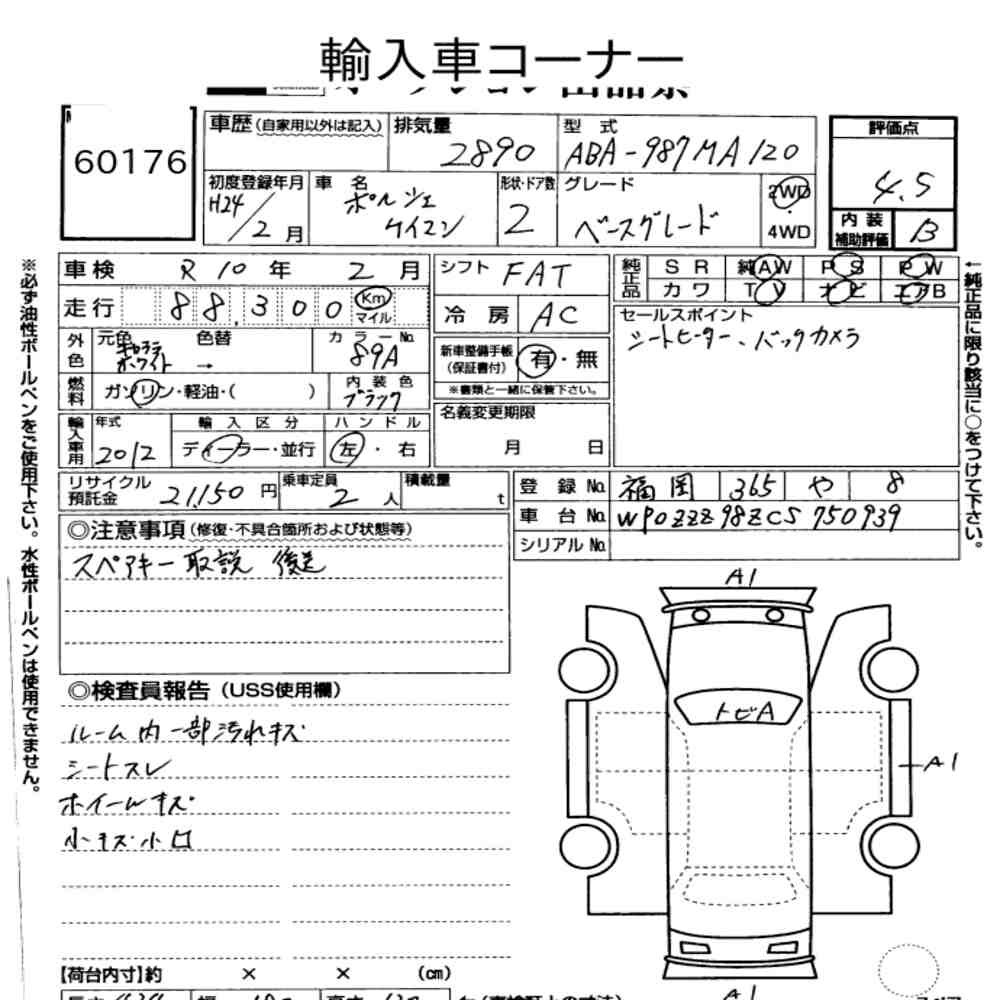 輸入車コーナー
60176
車歴 (自家用以外は記入)
排気量 2890
型式 ABA-987MA120
評価点 4.5
内装補助評価 B
初度登録年月 H24/2月
車名 ポルシェ ケイマン
形状・ドア数 2
グレード ベースグレード
2WD・4WD
車検 R10年 2月
シフト FAT
純正品 SR 純AW PS PW
カワ TV ナビ エアB
走行 88,300 Km マイル
冷房 AC
セールスポイント
シートヒーター、バックカメラ
外色 元色 キャララホワイト → 色替 カラーNo. B9A
新車整備手帳(保証書付) 有・無
※書類と一緒に保管下さい。
燃料 ガソリン・軽油・( )
内装色 ブラック
名義変更期限 月 日
輸入車用 年式 2012
輸入区分 ディーラー・並行
ハンドル 左・右
リサイクル預託金 21,150円
乗車定員 2人
積載量 t
登録No. 福岡 365 や 8
車台No. WP0ZZZ98ZCS750939
シリアルNo.
◎注意事項 (修復・不具合箇所および状態等)
スペアキー 取説 後送
◎検査員報告 (USS使用欄)
ルーム内一部汚れキズ
シートスレ
ホイールキズ
小キズ小凹
A1
トビA
A1
A1
【荷台内寸】約 × × (cm)
※必ず油性ボールペンをご使用下さい。水性ボールペンは使用できません。
←純正品に限り該当に○をつけて下さい。